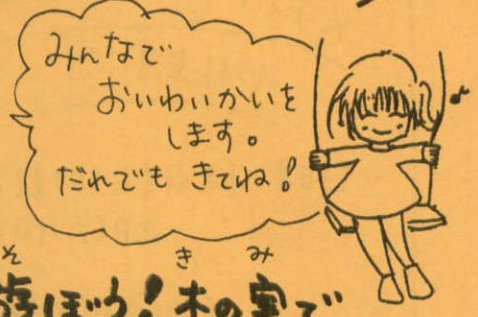 みんなで
おいわいかいを
します。
だれでも きてね!
そ き み
遊ぼう!木の実で